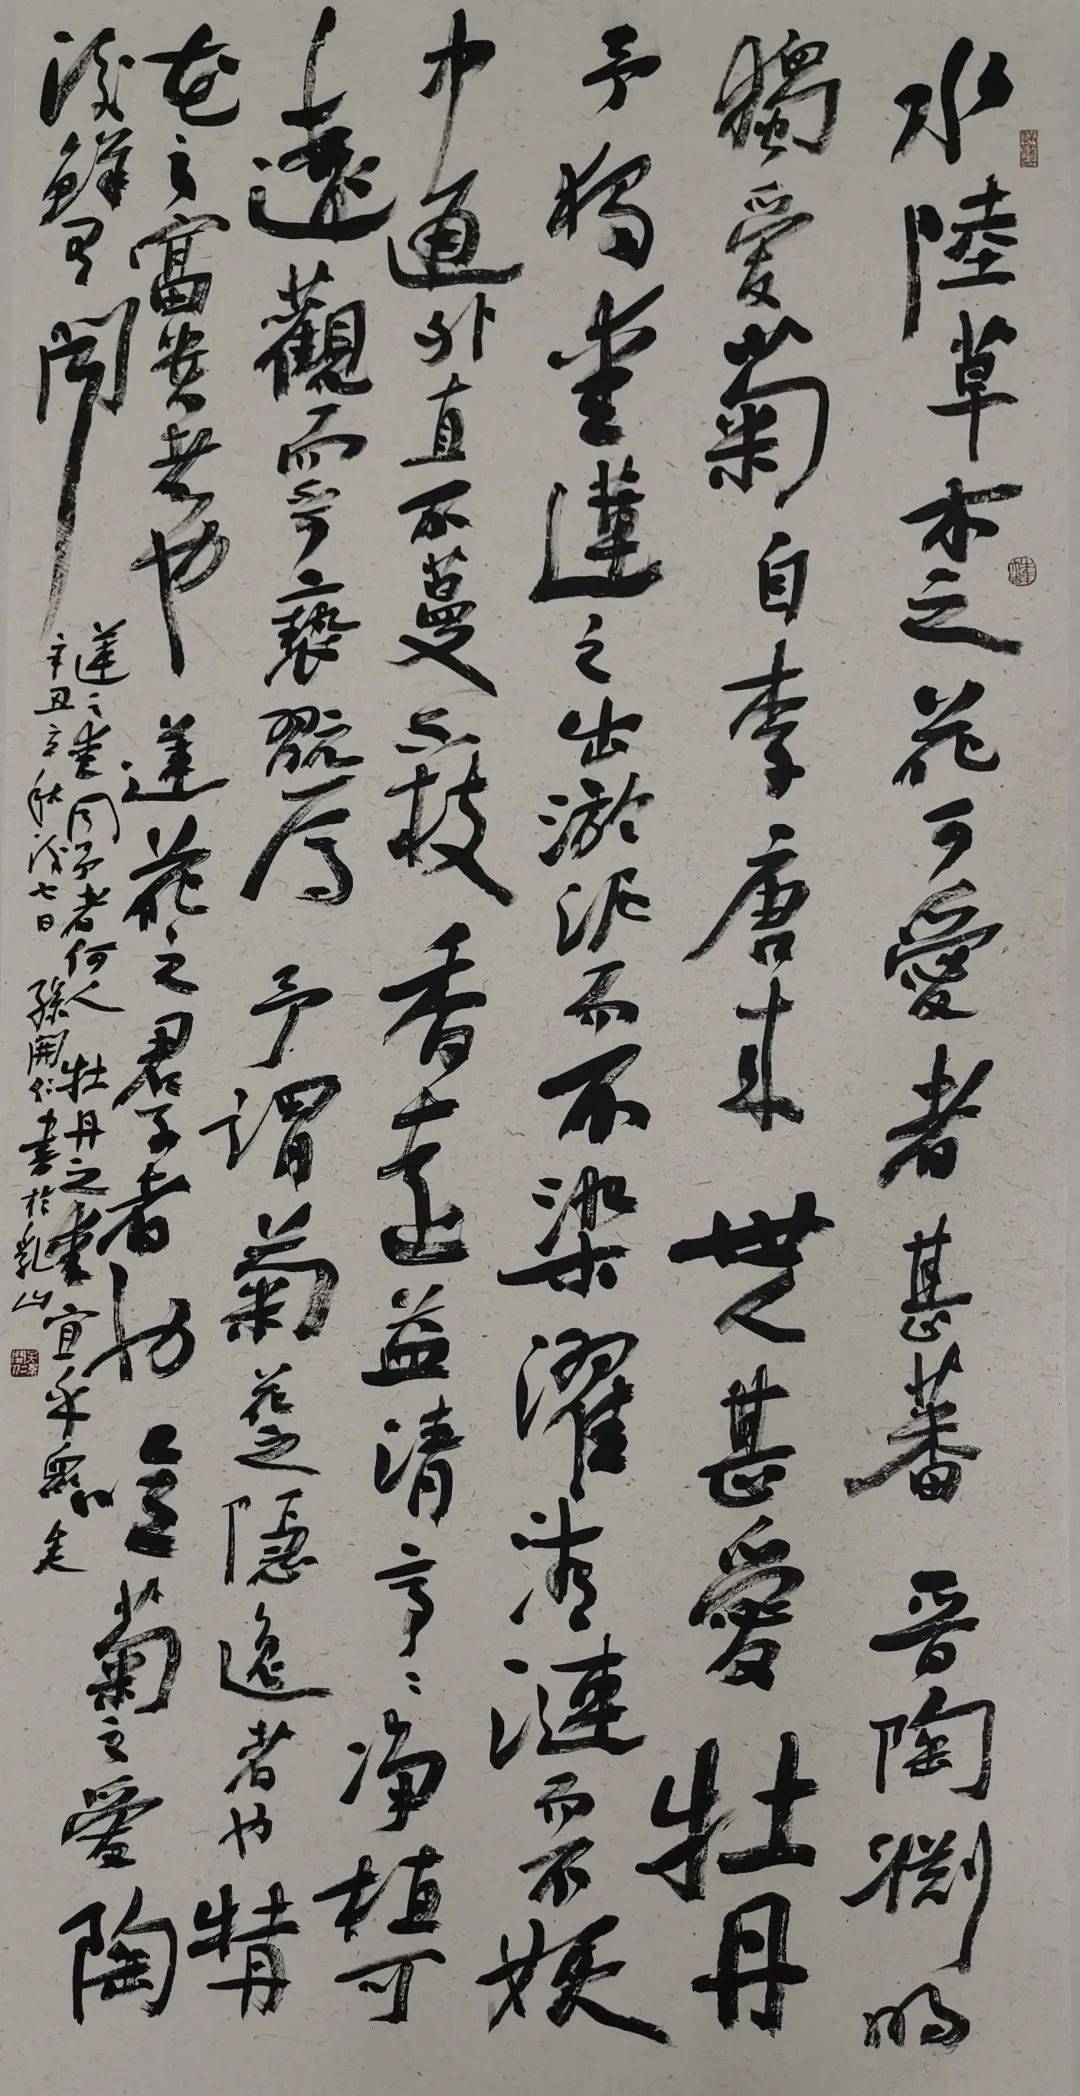 水陸草木之花可愛者甚蕃晋陶淵明
獨愛菊自李唐来世人甚愛牡丹
予獨愛蓮之出淤泥而不染濯清漣而不妖
中通外直不蔓不枝香遠益清亭々净植可
遠觀而不可褻翫焉予謂菊花之隱逸者也牡丹
花之富貴者也蓮花之君子者也噫菊之愛陶
後鮮有聞
蓮之愛同予者何人牡丹之愛宜乎衆矣
辛丑立秋後七日孫開仁書於乳山